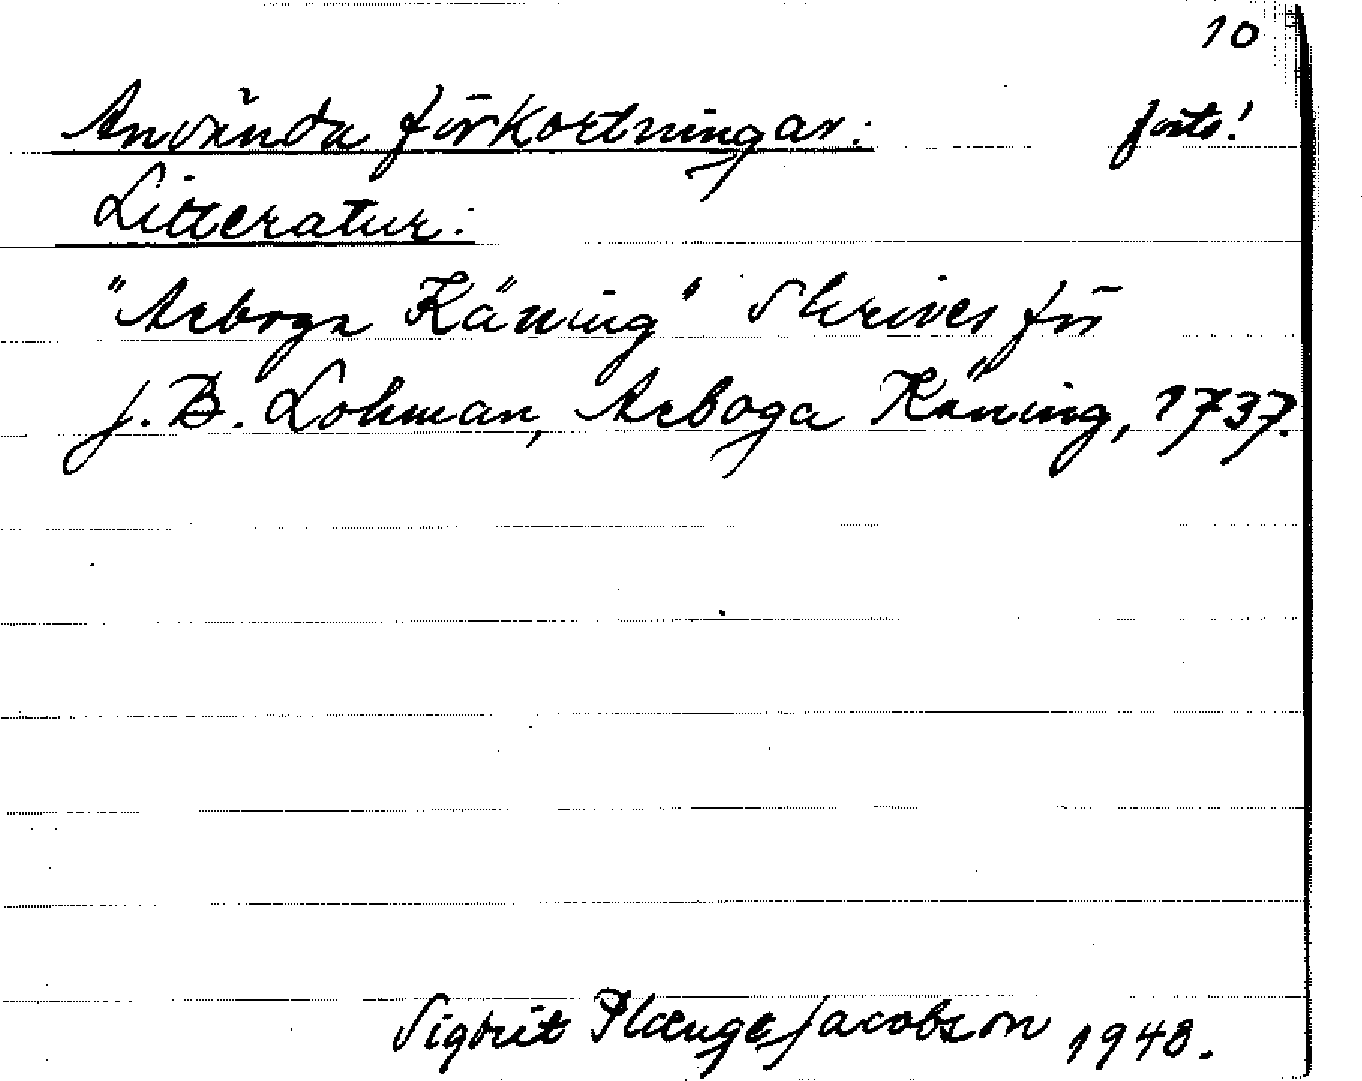 10
Använda förkortningar: forts!
Litteratur:
"Arboga Käning" skrives för
J. B. Lohman, Arboga Käning, 1737.
Sigbrit Plænge Jacobson 1948.